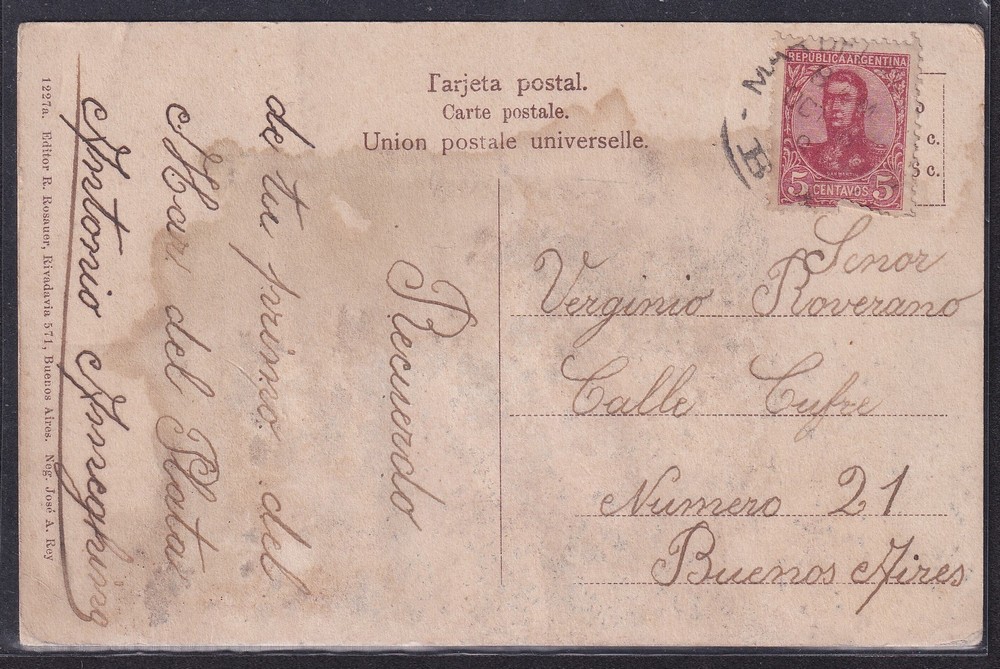 Tarjeta postal.
Carte postale.
Union postale universelle.
REPUBLICA ARGENTINA
5 CENTAVOS 5
c.
5 c.
Recuerdo
de tu primo del
Mar del Plata
Antonio
Senor
Verginio Roverano
Calle Cufre
Numero 21
Buenos Aires
1227a. Editor R. Rosauer, Rivadavia 571, Buenos Aires. Neg. José A. Rey